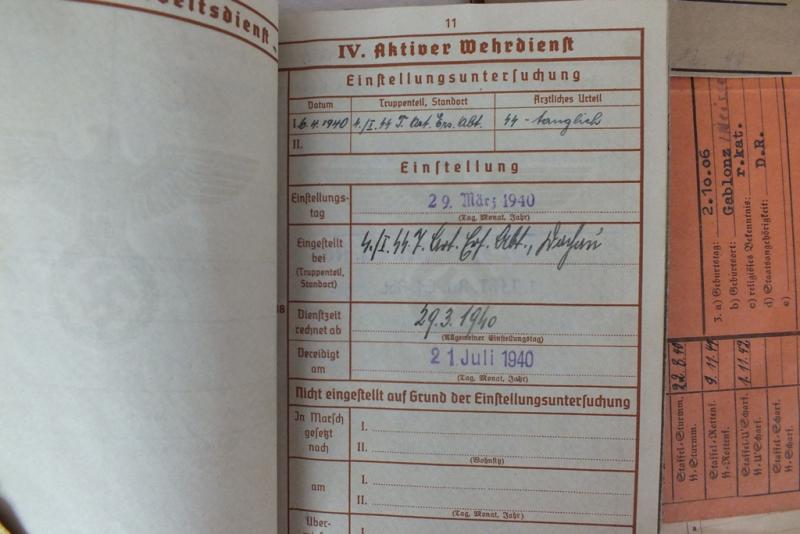 beitsdienst
11
IV. Aktiver Wehrdienst
Einstellungsuntersuchung
Datum Truppenteil, Standort Ärztliches Urteil
I. 6.4.1940 4./I. SS T. Art. Ers. Abt. SS-tauglich
II.
Einstellung
Einstellungstag 29. März 1940
(Tag, Monat, Jahr)
Eingestellt bei 4./I. SS T. Art. Ers. Abt., Dachau
(Truppenteil, Standort)
18
Dienstzeit rechnet ab 29.3.1940
(Allgemeiner Einstellungstag)
Vereidigt am 21 Juli 1940
(Tag, Monat, Jahr)
Nicht eingestellt auf Grund der Einstellungsuntersuchung
In Marsch gesetzt nach I.
II.
(Wohnsitz)
am I.
II.
(Tag, Monat, Jahr)
Über-
I.
3. a) Geburtstag: 2.10.06
b) Geburtsort: Gablonz
c) religiöses Bekenntnis: r.kat.
d) Staatsangehörigkeit: D.R.
e)
Staffel-Sturmm.
SS-Sturmm.
Staffel-Rottenf. 9.11.41
SS-Rottenf.
Staffel-U'Scharf. 1.11.42
SS-U'Scharf.
Staffel-Scharf.
SS-Scharf.